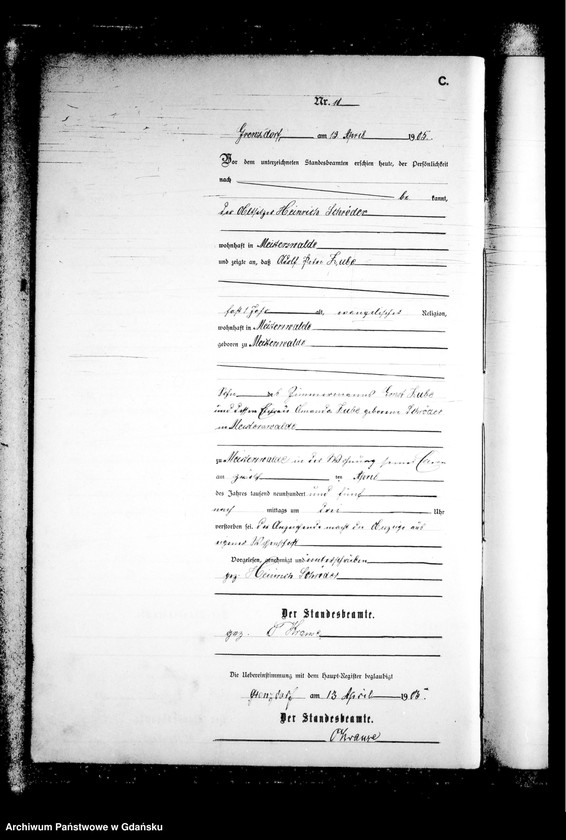 C.
Nr. 11
Grenzdorf am 13 April 1905.
Vor dem unterzeichneten Standesbeamten erschien heute, der Persönlichkeit
nach
be kannt,
der Heinrich Schröder
wohnhaft in Meisterswalde
und zeigte an, daß Adolf Lube
fast 1 Jahr alt, evangelischer Religion,
wohnhaft in Meisterswalde
geboren zu Meisterswalde
Sohn des Zimmermanns Lube
und dessen Ehefrau Amanda Lube geborene Schröder
in Meisterswalde
zu Meisterswalde in der Wohnung seiner Eltern
am zwölf ten April
des Jahres tausend neunhundert und fünf
nach mittags um drei Uhr
verstorben sei. Der Anzeigende macht die Anzeige aus
eigener Wissenschaft
Vorgelesen, genehmigt und unterschrieben
gez. Heinrich Schröder
Der Standesbeamte.
gez. Krause
Die Uebereinstimmung mit dem Haupt-Register beglaubigt
Grenzdorf am 13 April 1905.
Der Standesbeamte.
Krause
Archiwum Państwowe w Gdańsku